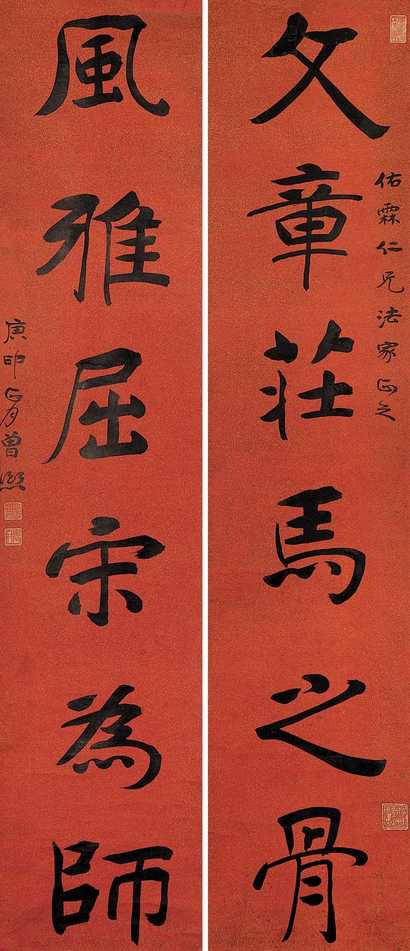 文章莊馬之骨
佑霖仁兄法家正之
風雅屈宋為師
庚申正月曾熙